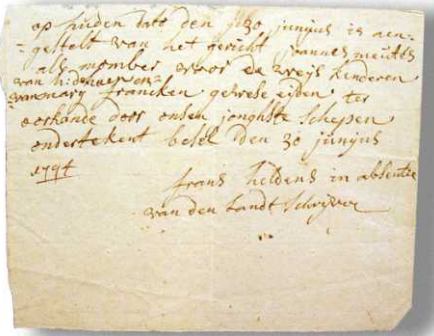 op huden datt den 30 junijus is aen=
=gestelt van het gericht joannes meutes
als momber voor de weijs kinderen
van
=van mary francken gewese eijden ter
oorkonde door onsen jonghste schepen
ondertekent besel den 30 junijus
1794
frans heldens in absentie
van den landt schriver